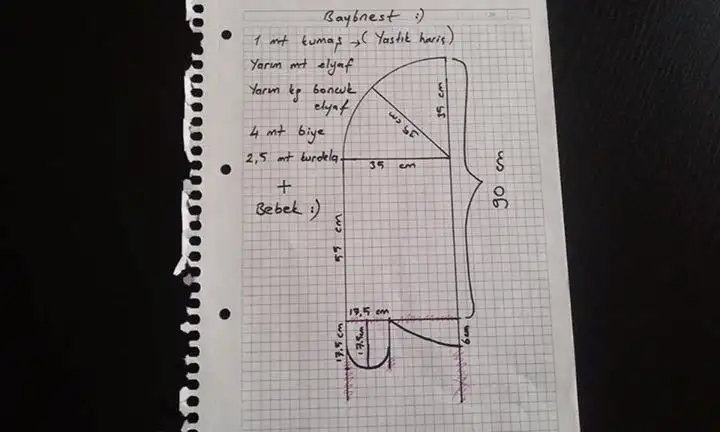 Baybnest :)
1 mt kumaş →( Yastık hariç)
Yarım mt elyaf
Yarım kg boncuk
elyaf
4 mt biye
2,5 mt kurdela
+
Bebek :)
35 cm
35 cm
35 cm
90 cm
55 cm
17,5 cm
17,5 cm
17,5 cm
6 cm